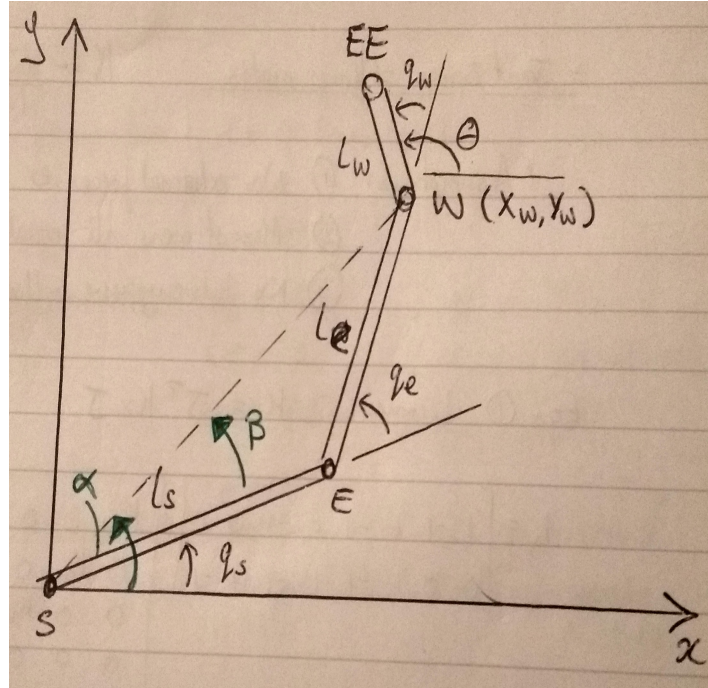 y
EE
q_w
θ
l_w
W (x_w, y_w)
l_e
q_e
β
α
l_s
E
q_s
S
x